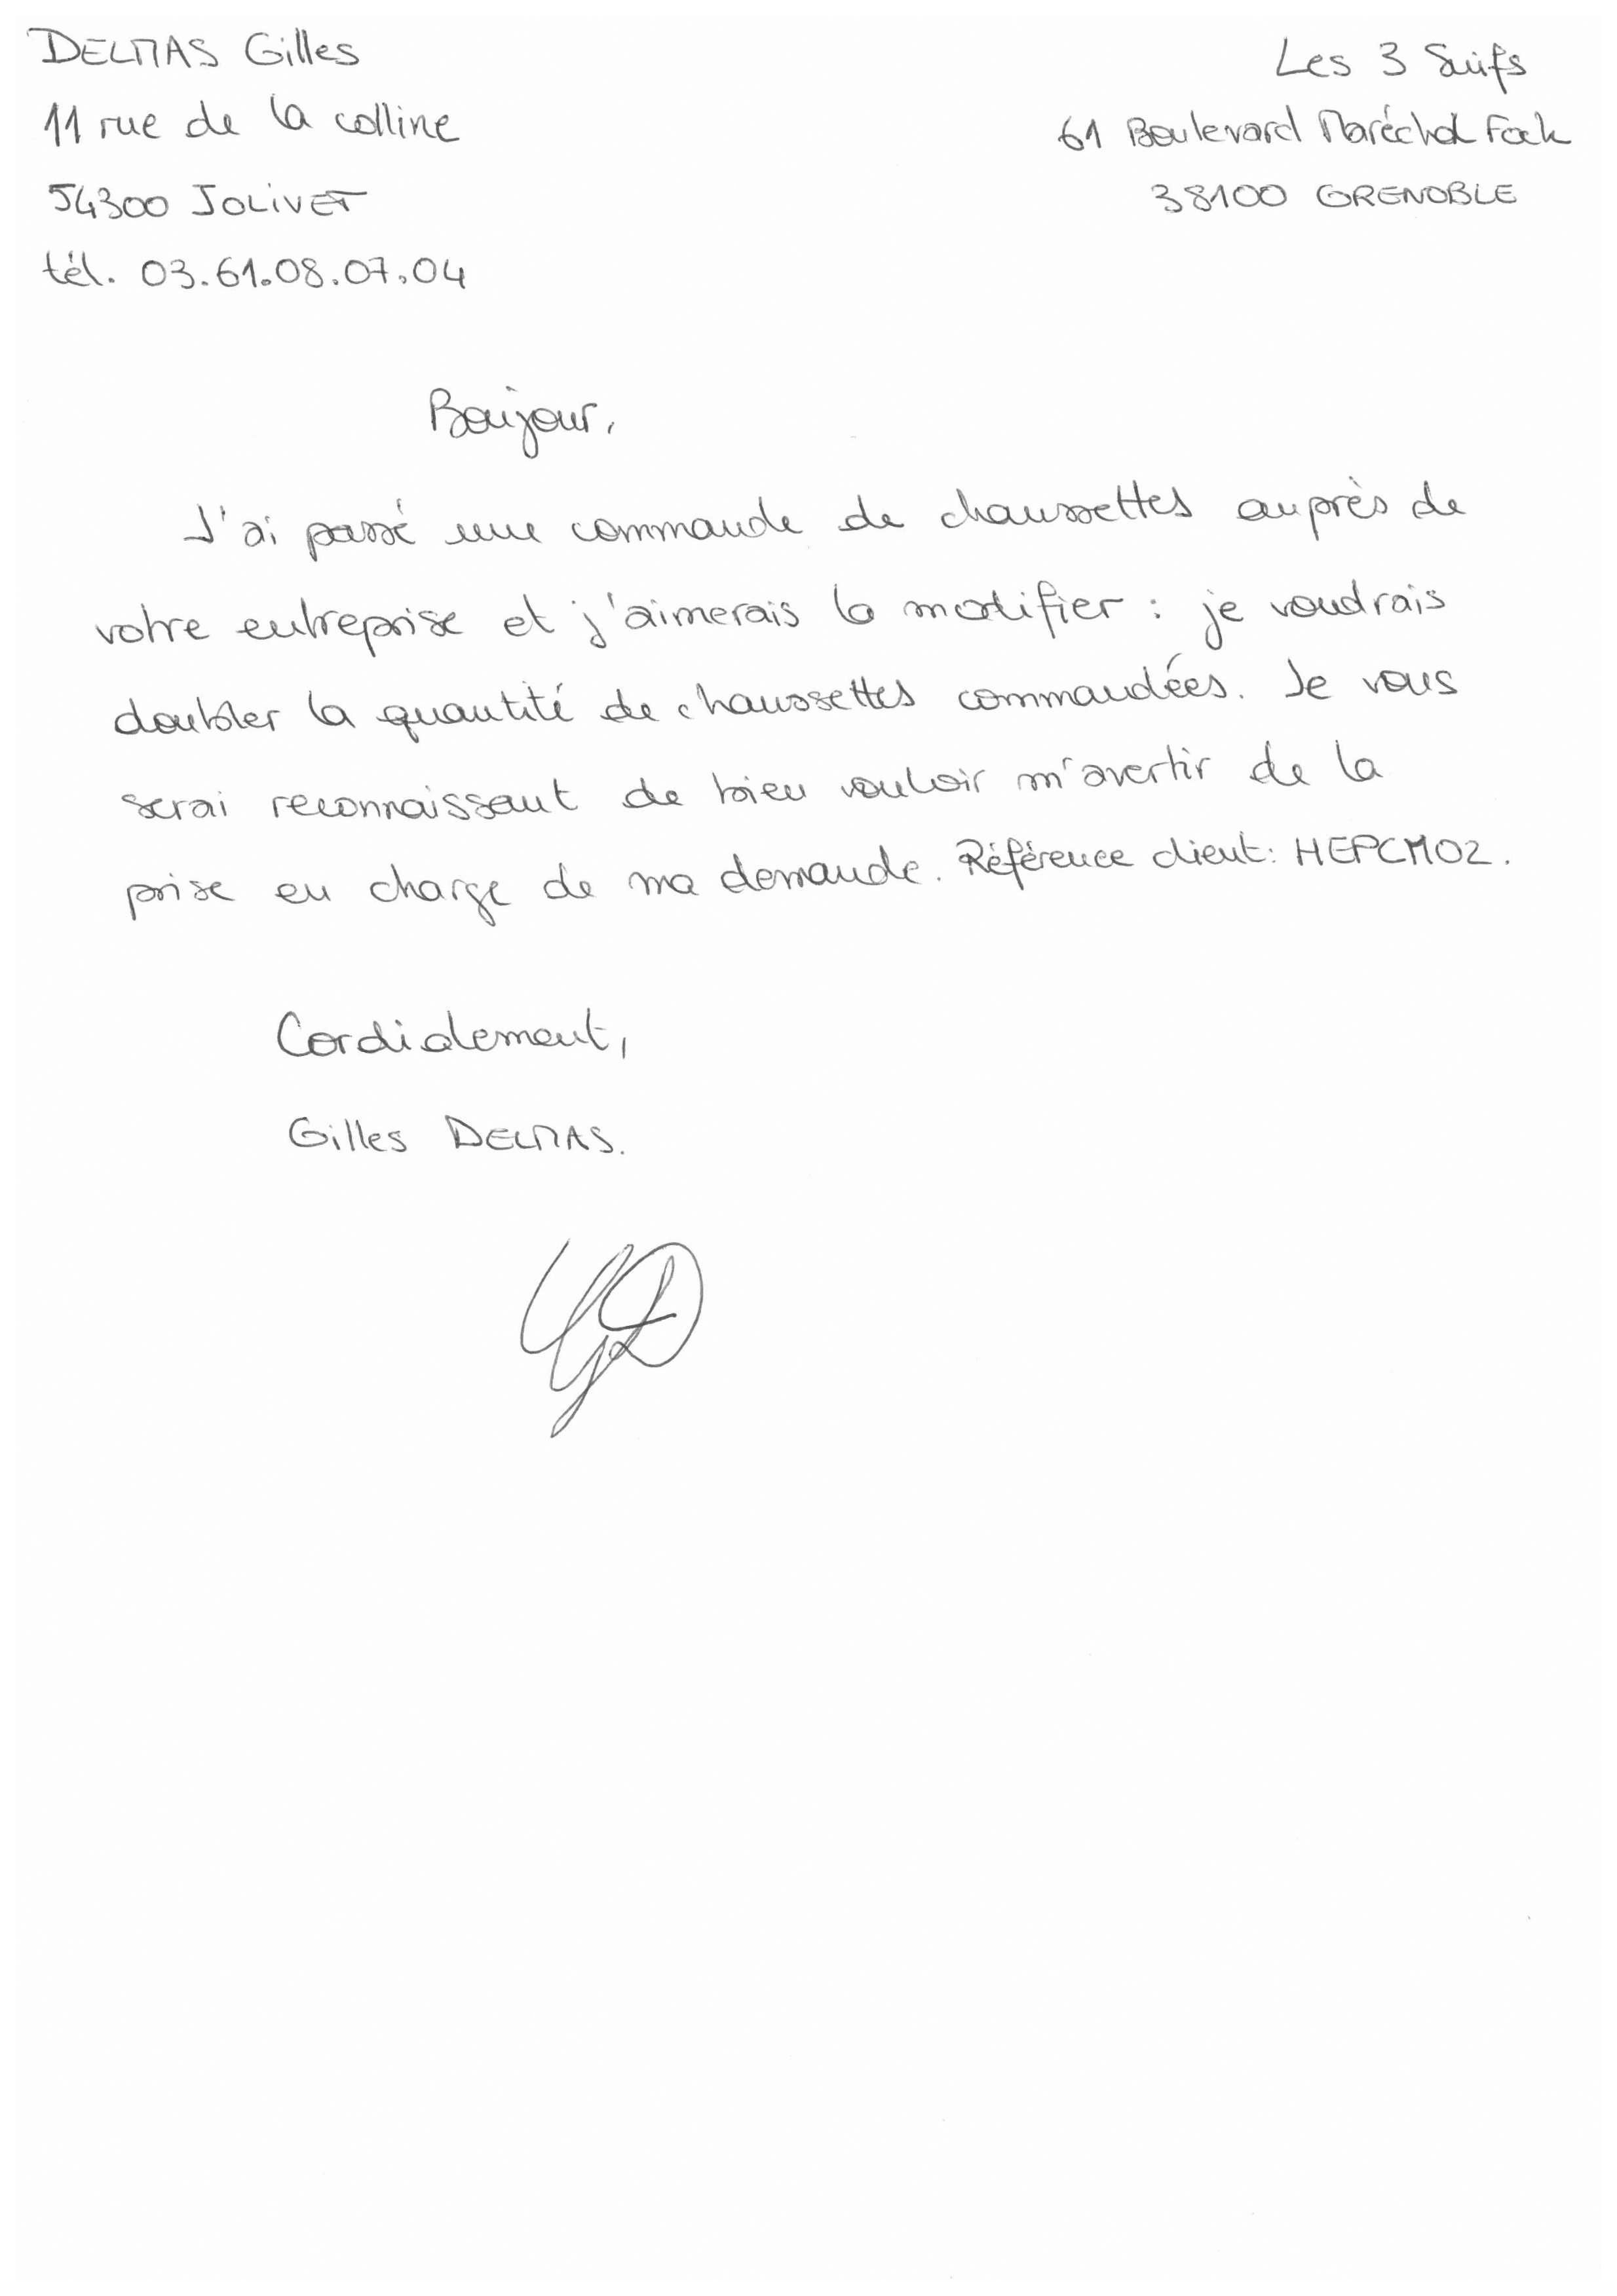 DELMAS Gilles
11 rue de la colline
54300 JOLIVET
tél. 03.61.08.07.04
Les 3 Suifs
61 Boulevard Maréchal Foch
38100 GRENOBLE
Bonjour,
J'ai passé une commande de chaussettes auprès de
votre entreprise et j'aimerais la modifier : je voudrais
doubler la quantité de chaussettes commandées. Je vous
serai reconnaissant de bien vouloir m'avertir de la
prise en charge de ma demande. Référence client : HEPCM02.
Cordialement,
Gilles DELMAS.